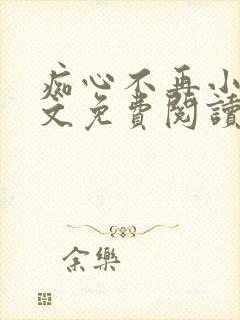 痴心不再小
文免費閱讀
余樂